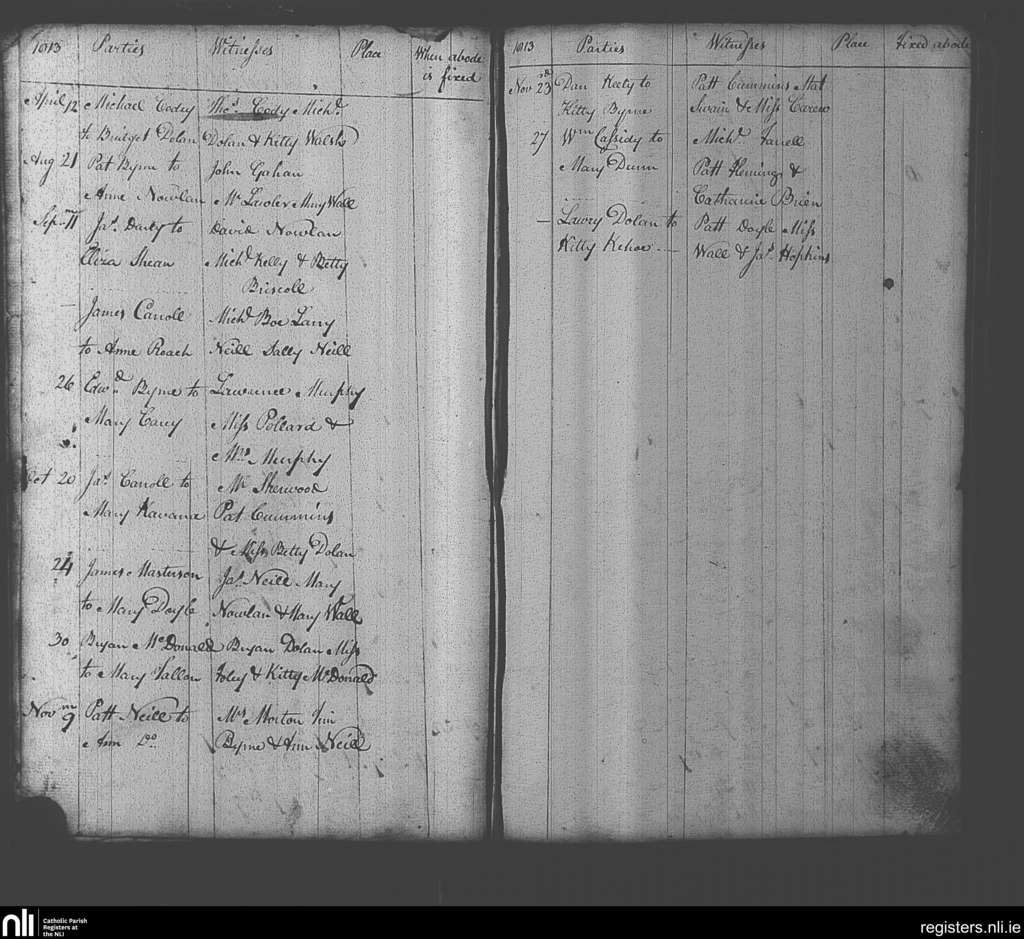 1813 Parties Witnesses Place When abode
is fixed
April 12 Michael Cody Thos. Cody Michl.
to Bridget Dolan Dolan & Kitty Walsh
Aug 21 Pat Byrne to John Gahan
Anne Nowlan Mr Lawler Mary Wall
Sep. 11 Jas. Darby to David Nowlan
Eliza Shean Michl Kelly & Betty
Briscoll
James Carroll Michl Boe Larry
to Anne Roach Neill Sally Neill
26 Edwd Byrne to Lawrence Murphy
Mary Carey Miss Pollard &
Mrs Murphy
Oct 20 Jas. Carroll to Mr Sherwood
Mary Kavana Pat Cummins
& Miss Betty Dolan
24 James Masterson Jas. Neill Mary
to Mary Doyle Nowlan & Mary Wall
30 Bryan McDonald Bryan Dolan Miss
to Mary Fallon Foley & Kitty McDonald
Novm 9 Patt Neill to Mrs Morton Tim
Ann Do. Byrne & Ann Neill
1813 Parties Witnesses Place Fixed abode
Nov 23rd Dan Keety to Patt Cummins Mat
Kitty Byrne Swain & Miss Carew
27 Wm Cassidy to Michl. Farrell
Mary Dunn Patt Fleming &
Catharine Brien
— Lawry Dolan to Patt Doyle Miss
Kitty Kehoe — Wall & Jas. Hopkins
nli Catholic Parish
Registers at
the NLI
registers.nli.ie